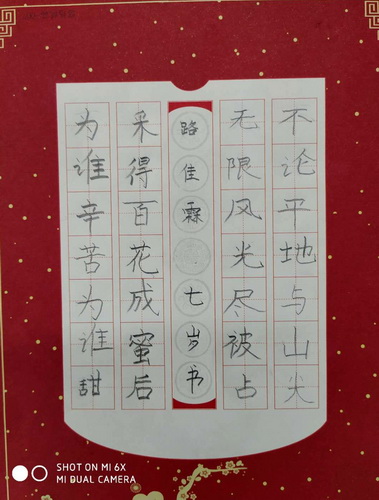 不论平地与山尖
无限风光尽被占
路佳霖 七岁书
采得百花成蜜后
为谁辛苦为谁甜
SHOT ON MI 6X
MI DUAL CAMERA